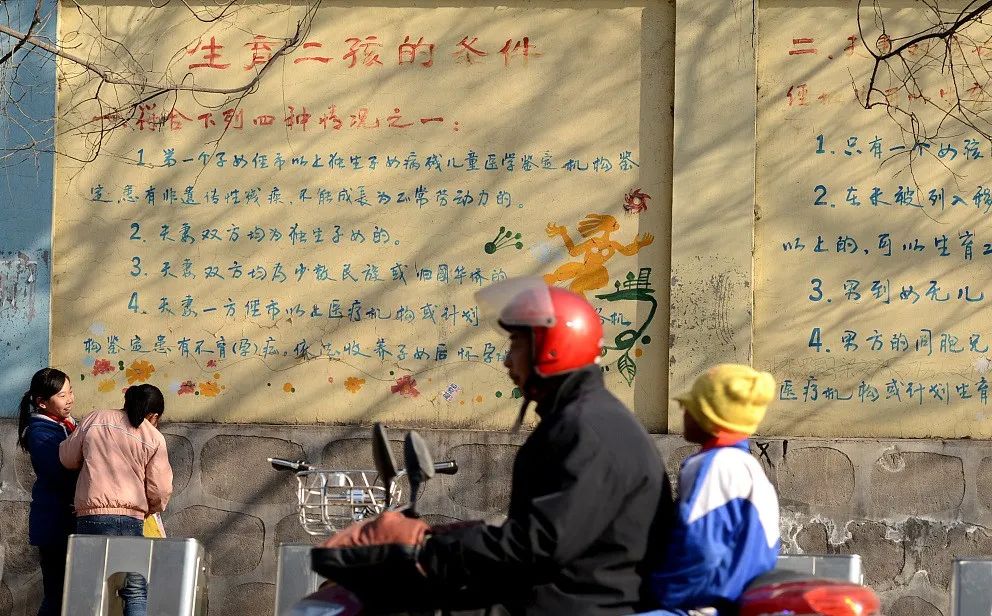 生育二孩的条件
一、符合下列四种情况之一：
1. 第一个子女经市以上独生子女病残儿童医学鉴定机构鉴
定，患有非遗传性残疾，不能成长为正常劳动力的。
2. 夫妻双方均为独生子女的。
3. 夫妻双方均为少数民族或归国华侨的
4. 夫妻一方经市以上医疗机构或计划
机
构鉴定患有不育(孕)症，依法收养子女后怀孕
二、
1. 只有一个女孩
2. 在未被列入移
以上的，可以生育二
3. 男到女无儿
4. 男方的同胞兄
医疗机构或计划生育